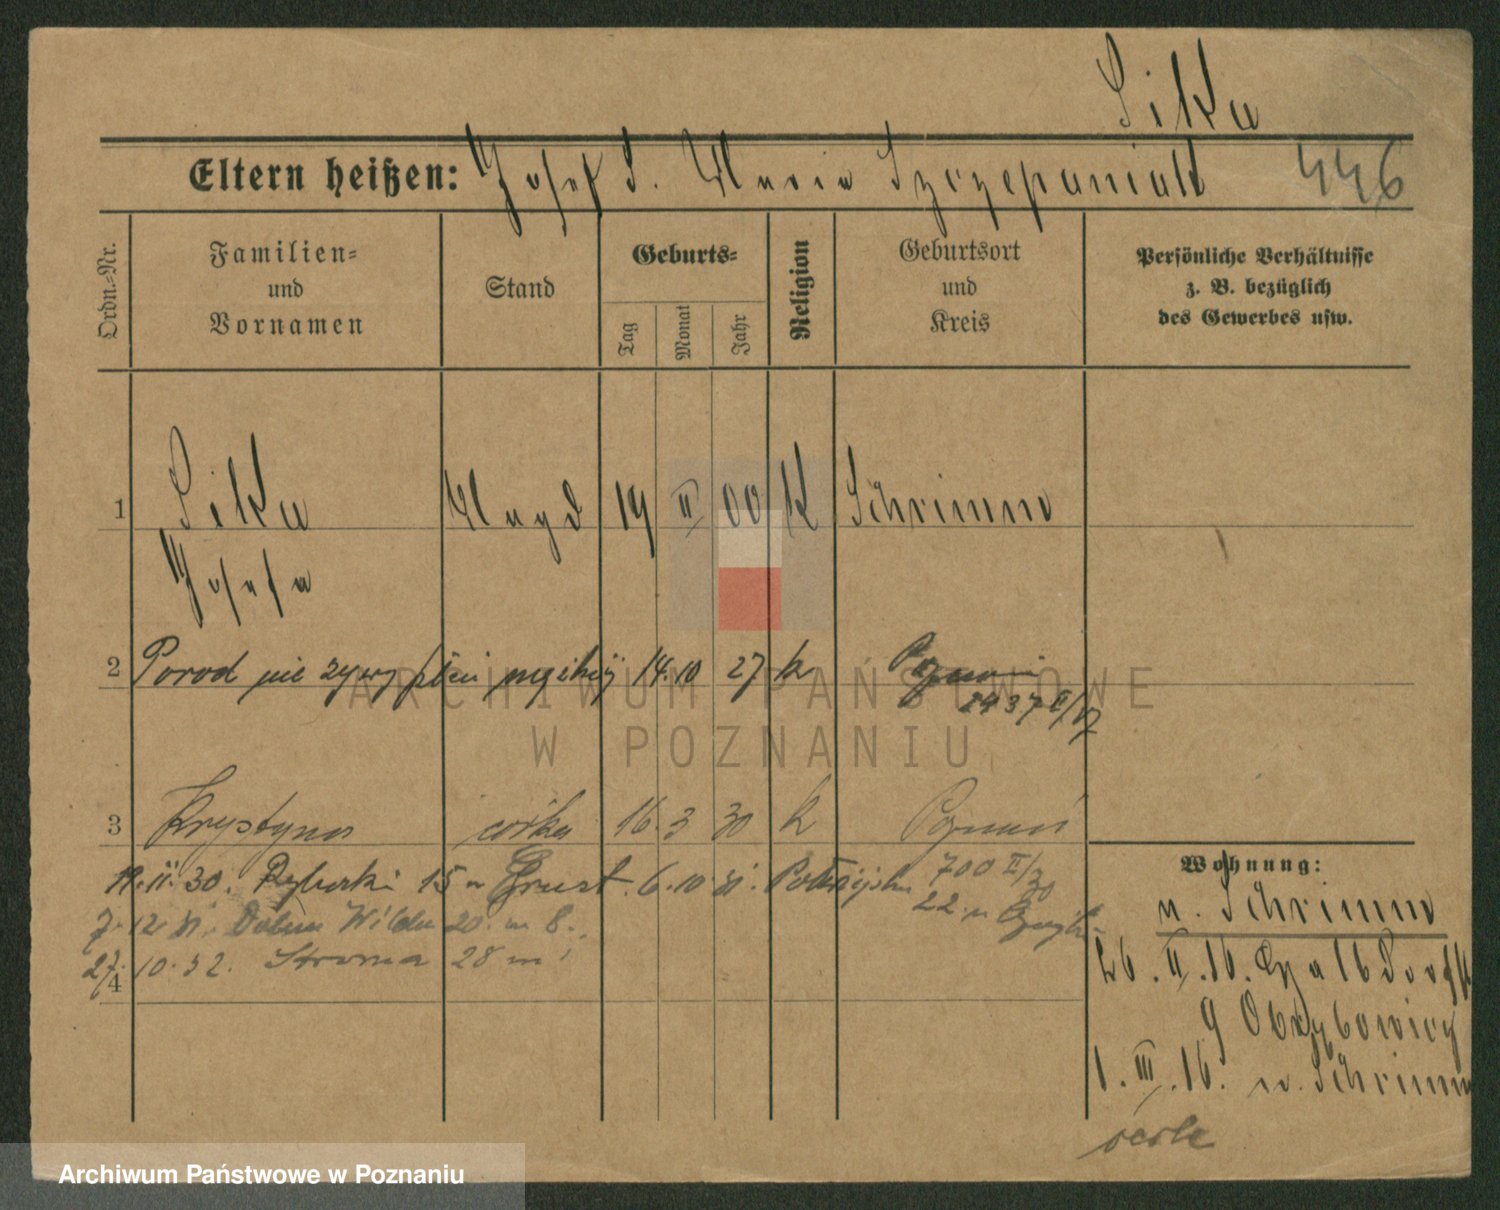 Sika
Eltern heißen: Josef S. Maria Szczepaniak 446
Ordn.-Nr. Familien- und Vornamen Stand Geburts- Tag Monat Jahr Religion Geburtsort und Kreis Persönliche Verhältnisse z. B. bezüglich des Gewerbes usw.
1 Sika Magd 19 II 00 K Schrimm
Josefa
2 Porod nie żywy płci męskiej 14. 10 27 k Poznań
2437 II/27
3 Krystyna córka 16. 3 30 k Poznań
700 II/30
Wohnung:
19. 11. 30. Rybaki 15 u 6. 10. 31.
22 u
n. Schrimm
7. 12. 31. Dolna Wilda 20. m 8.
27. 10. 32. Stroma 28 m
4
26. II. 16.
1. III. 16. n. Schrimm
ARCHIWUM PAŃSTWOWE
W POZNANIU
Archiwum Państwowe w Poznaniu